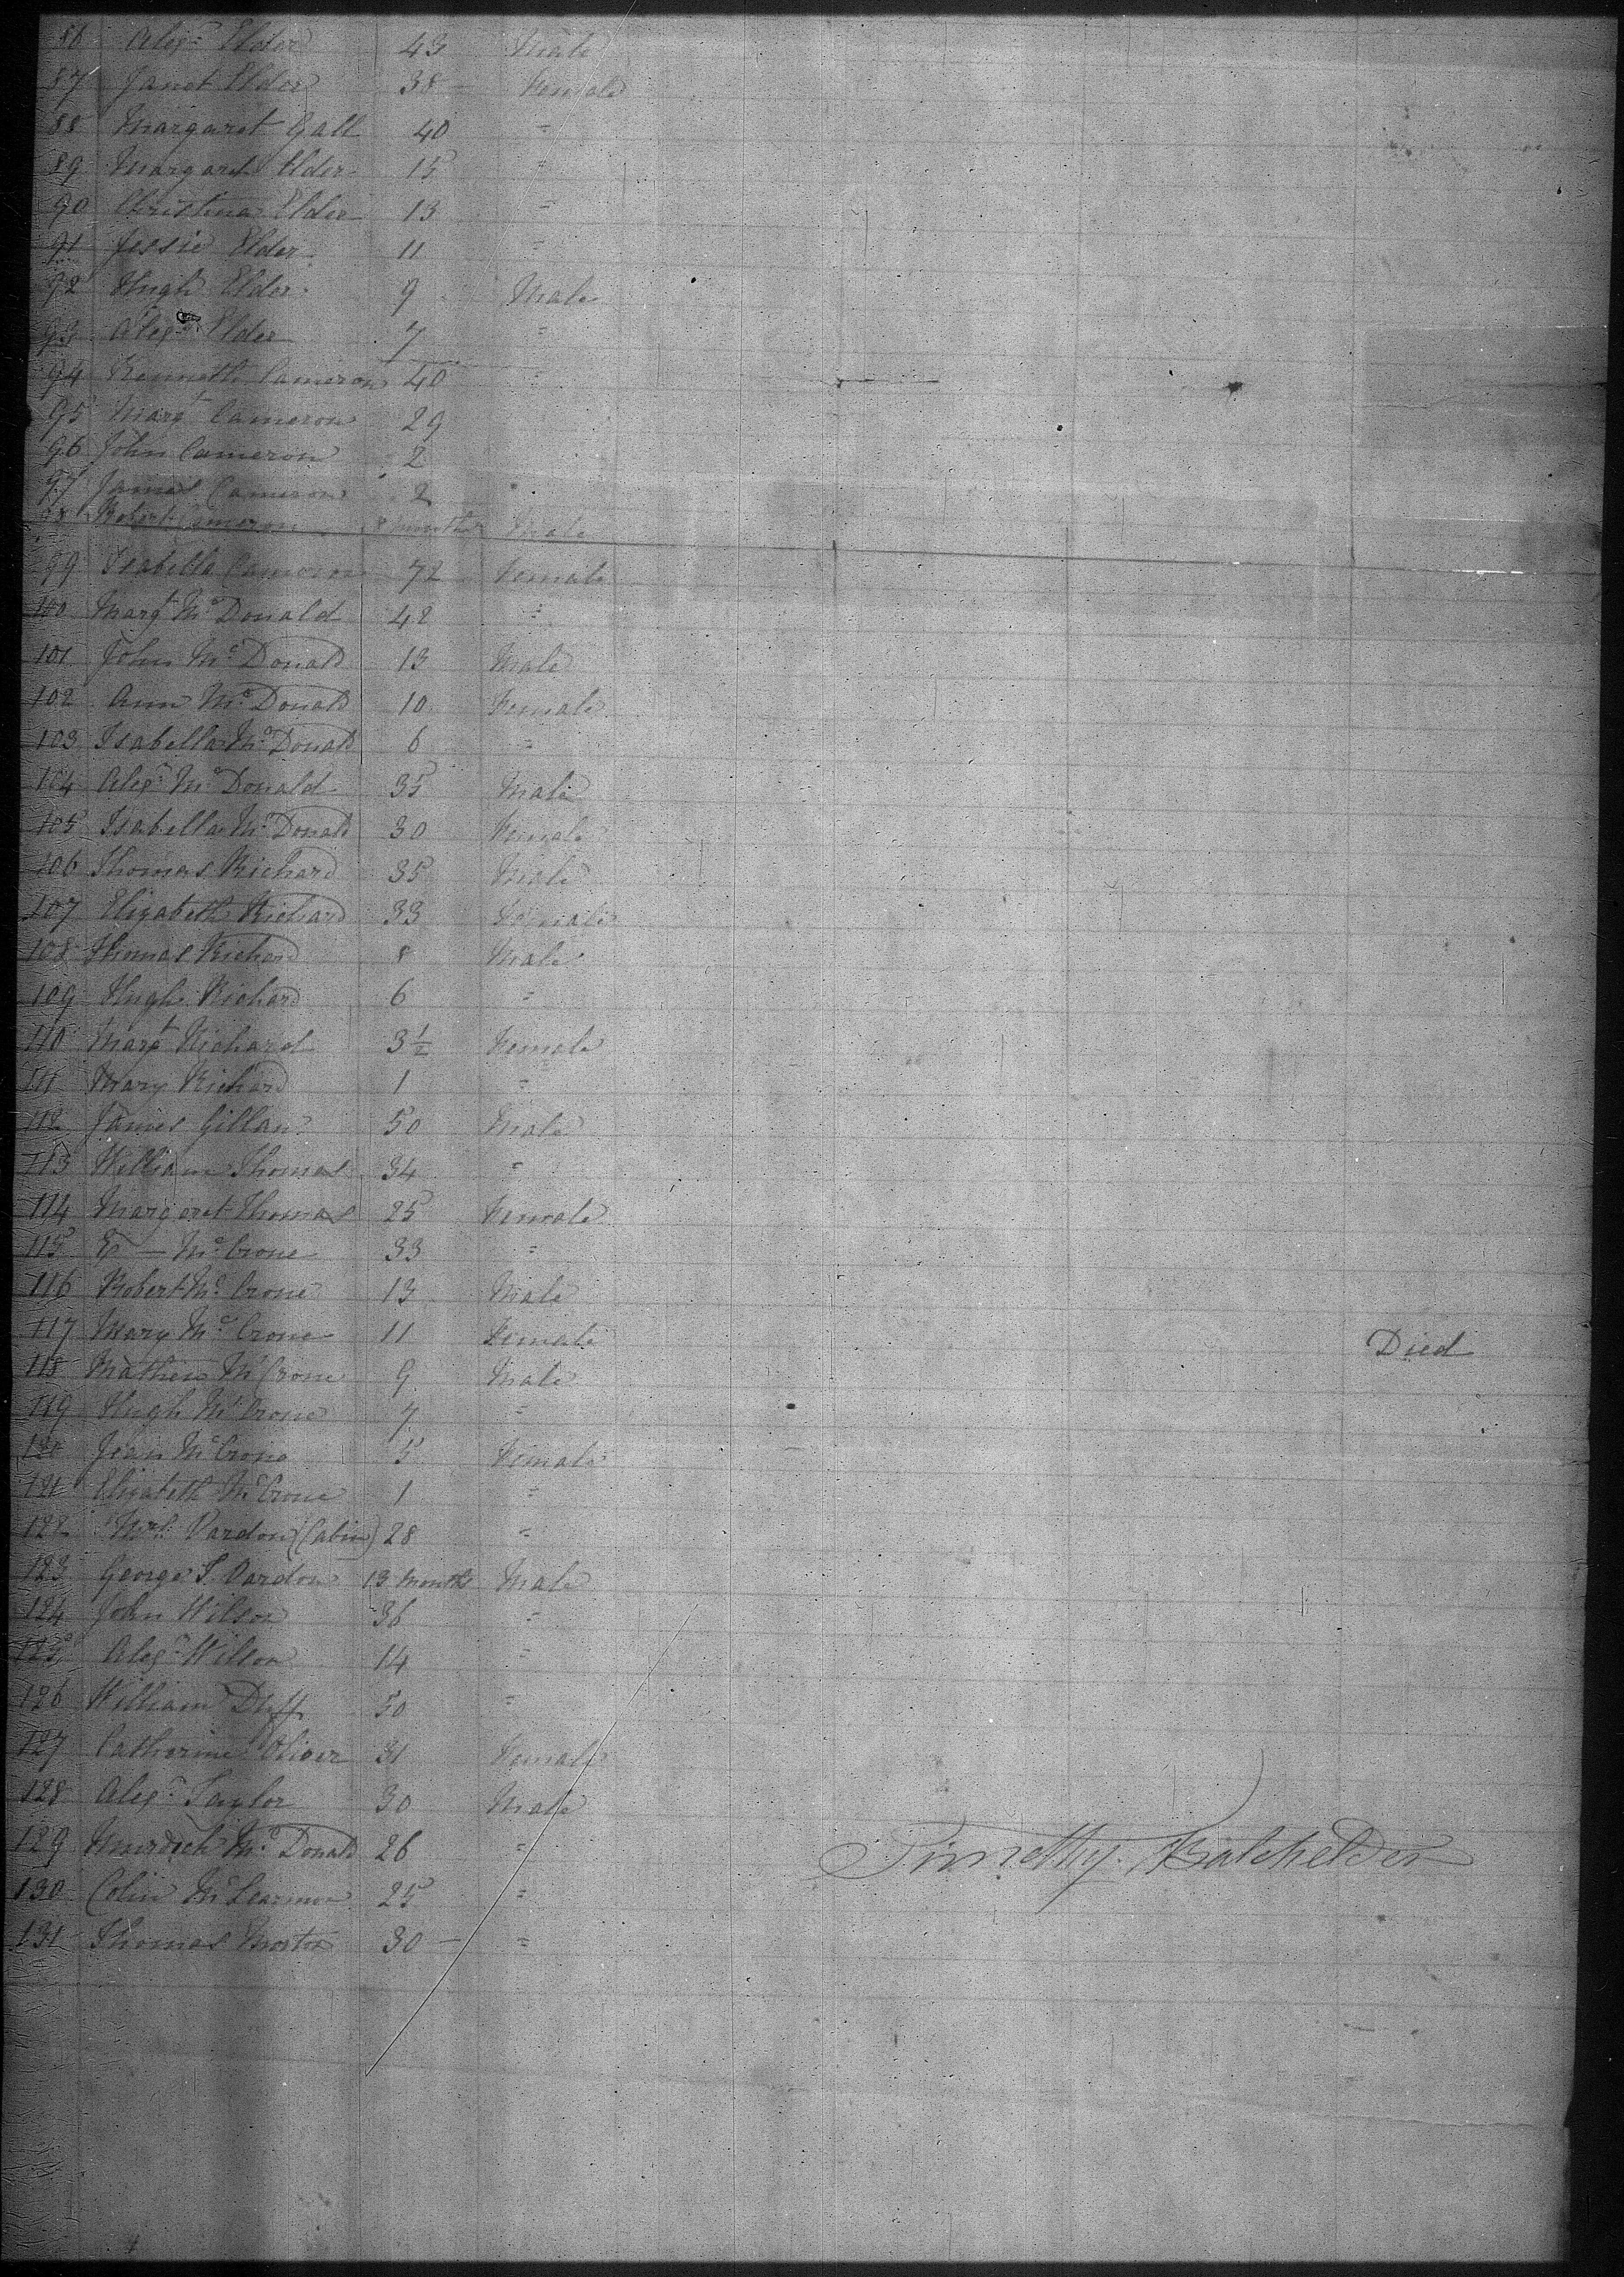 86 Alexr Elder 43 Male
87 Janet Elder 38 Female
88 Margaret Gall 40 "
89 Margaret Elder 15 "
90 Christina Elder 13 "
91 Jessie Elder 11 "
92 Hugh Elder 9 Male
93 Alexr Elder 7 "
94 Kenneth Cameron 40 "
95 Margt Cameron 29
96 John Cameron 2
97 James Cameron 2
98 Robert Cameron 8 months Male
99 Isabella Cameron 72 Female
100 Margt McDonald 42 "
101 John McDonald 13 Male
102 Ann McDonald 10 Female
103 Isabella McDonald 6 "
104 Alexr McDonald 35 Male
105 Isabella McDonald 30 Female
106 Thomas Richard 35 Male
107 Elizabeth Richard 33 Female
108 Thomas Richard 8 Male
109 Hugh Richard 6 "
110 Margt Richard 3 1/2 Female
111 Mary Richard 1 "
112 James Gillan 50 Male
113 William Thomas 34 "
114 Margaret Thomas 25 Female
115 E — McCrone 33 "
116 Robert McCrone 13 Male
117 Mary McCrone 11 Female Died
118 Mathew McCrone 9 Male
119 Hugh McCrone 7 "
120 Jean McCrone 5 Female
121 Elizabeth McCrone 1 "
122 Mrs Pardon (Cabin) 28 "
123 George S. Pardon 13 months Male
124 John Wilson 36 "
125 Alexr Wilson 14 "
126 William 50 "
127 Catherine Oliver 31 Female
128 Alexr Taylor 30 Male
129 Murdoch McDonald 26 "
Timothy Batchelder
130 Colin 25 "
131 Thomas 30 — "